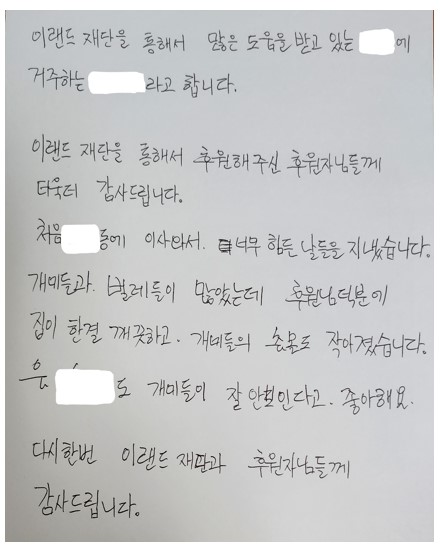 이랜드 재단을 통해서 많은 도움을 받고 있는 에
거주하는 라고 합니다.
이랜드 재단을 통해서 후원해주신 후원자님들께
더욱더 감사드립니다.
처음 동에 이사와서. 너무 힘든 날들을 지냈습니다.
개미들과. 벌레들이 많았는데 후원님덕분에
집이 한결 깨끗하고. 개미들의 출몰도 작아졌습니다.
도 개미들이 잘 안보인다고. 좋아해요.
다시한번 이랜드 재단과 후원자님들께
감사드립니다.